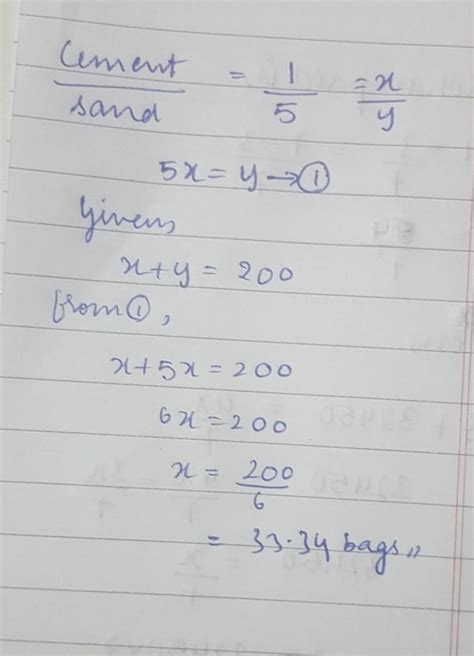 Cement / sand = 1/5 = x/y
5x = y → ①
Given,
x+y = 200
from ①,
x+5x = 200
6x = 200
x = 200/6
= 33.34 bags,,